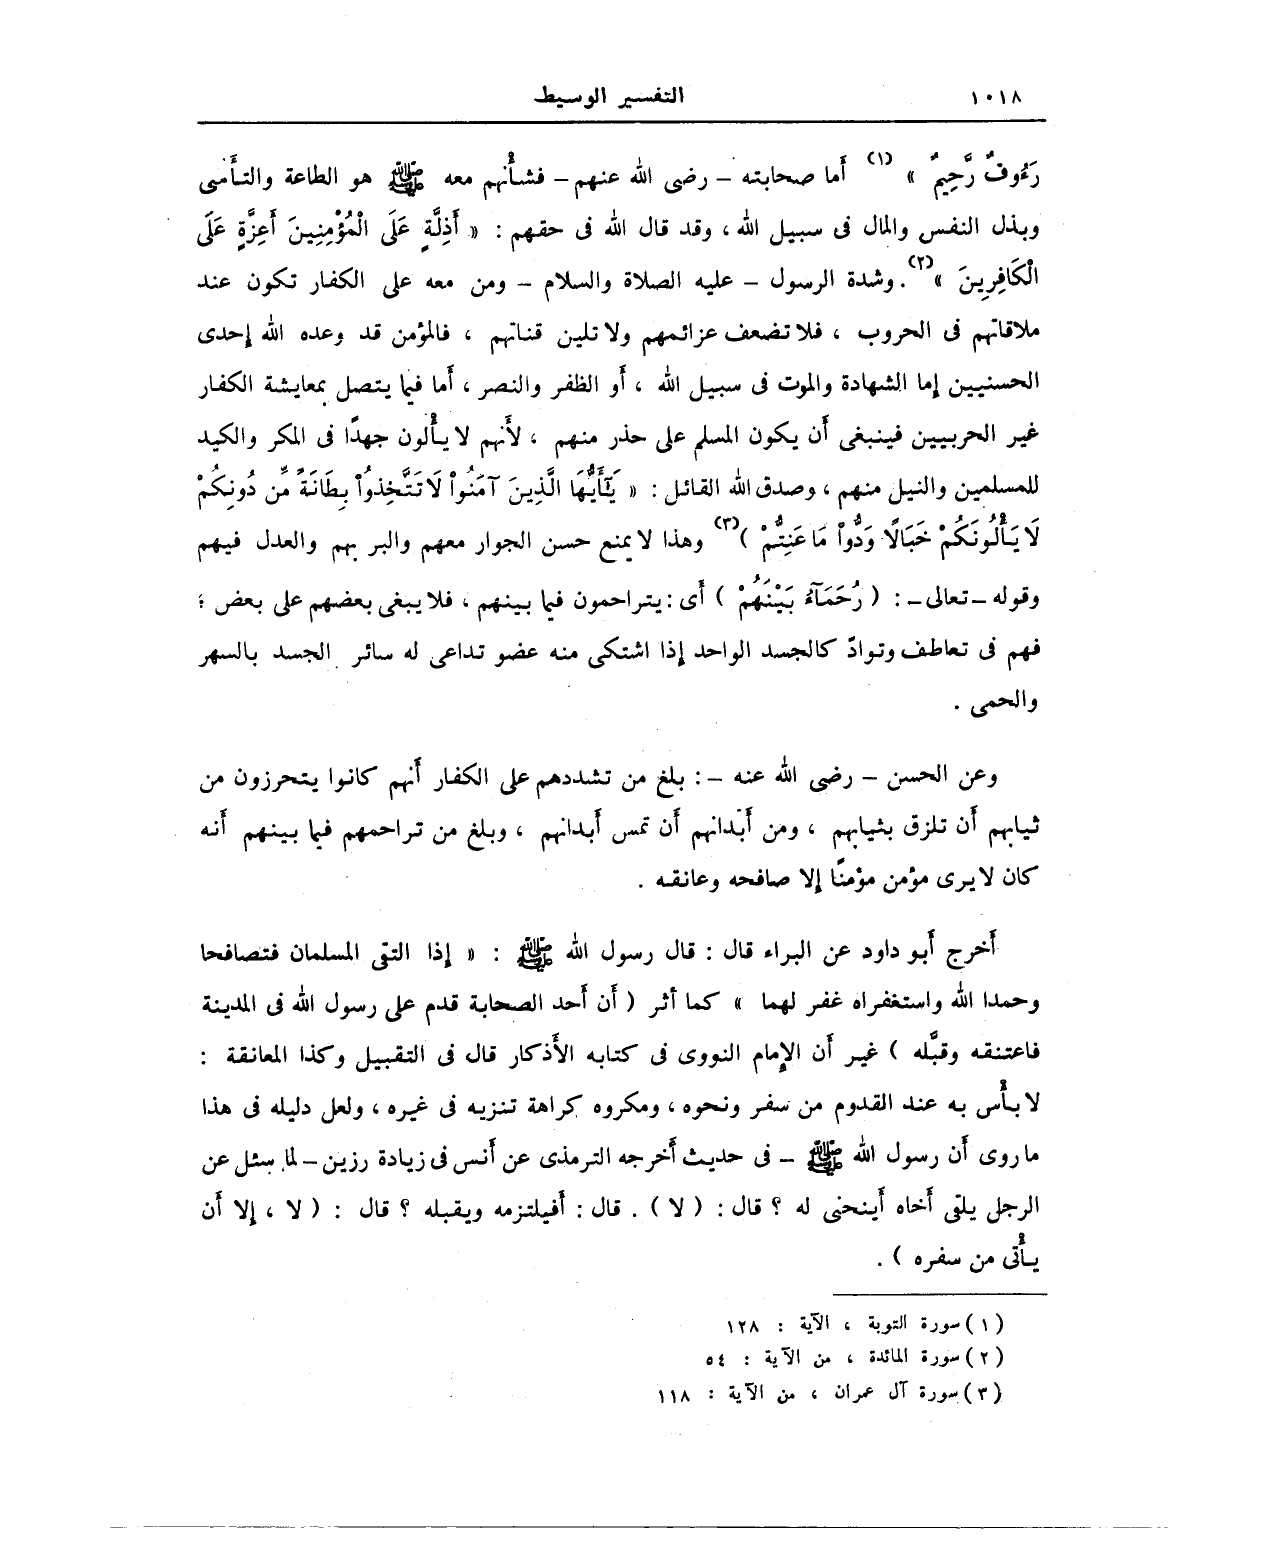 ١٠١٨ التفسير الوسيط
رَءُوفٌ رَّحِيمٌ » (١) أما صحابته – رضى الله عنهم – فشأنهم معه ﷺ هو الطاعة والتأسى
وبذل النفس والمال فى سبيل الله ، وقد قال الله فى حقهم : « أَذِلَّةٍ عَلَى الْمُؤْمِنِينَ أَعِزَّةٍ عَلَى
الْكَافِرِينَ » (٢) . وشدة الرسول – عليه الصلاة والسلام – ومن معه على الكفار تكون عند
ملاقاتهم فى الحروب ، فلا تضعف عزائمهم ولا تلين قناتهم ، فالمؤمن قد وعده الله إحدى
الحسنيين إما الشهادة والموت فى سبيل الله ، أو الظفر والنصر ، أما فيما يتصل بمعايشة الكفار
غير الحربيين فينبغى أن يكون المسلم على حذر منهم ، لأنهم لا يألون جهدًا فى المكر والكيد
للمسلمين والنيل منهم ، وصدق الله القائل : « يَٰٓأَيُّهَا الَّذِينَ آمَنُواْ لَا تَتَّخِذُواْ بِطَانَةً مِّن دُونِكُمْ
لَا يَأْلُونَكُمْ خَبَالًا وَدُّواْ مَا عَنِتُّمْ ) (٣) وهذا لا يمنع حسن الجوار معهم والبر بهم والعدل فيهم
وقوله – تعالى – : ( رُحَمَآءُ بَيْنَهُمْ ) أى : يتراحمون فيما بينهم ، فلا يبغى بعضهم على بعض ؛
فهم فى تعاطف وتوادّ كالجسد الواحد إذا اشتكى منه عضو تداعى له سائر الجسد بالسهر
والحمى .
وعن الحسن – رضى الله عنه – : بلغ من تشددهم على الكفار أنهم كانوا يتحرزون من
ثيابهم أن تلزق بثيابهم ، ومن أبدانهم أن تمس أبدانهم ، وبلغ من تراحمهم فيما بينهم أنه
كان لا يرى مؤمن مؤمنًا إلا صافحه وعانقه .
أخرج أبو داود عن البراء قال : قال رسول الله ﷺ : « إذا التقى المسلمان فتصافحا
وحمدا الله واستغفراه غفر لهما » كما أثر ( أن أحد الصحابة قدم على رسول الله فى المدينة
فاعتنقه وقبَّله ) غير أن الإمام النووى فى كتابه الأذكار قال فى التقبيل وكذا المعانقة :
لا بأس به عند القدوم من سفر ونحوه ، ومكروه كراهة تنزيه فى غيره ، ولعل دليله فى هذا
ما روى أن رسول الله ﷺ – فى حديث أخرجه الترمذى عن أنس فى زيادة رزين – لما سئل عن
الرجل يلقى أخاه أينحنى له ؟ قال : ( لا ) . قال : أفيلتزمه ويقبله ؟ قال : ( لا ، إلا أن
يأتى من سفره ) .
(١) سورة التوبة ، الآية : ١٢٨
(٢) سورة المائدة ، من الآية : ٥٤
(٣) سورة آل عمران ، من الآية : ١١٨